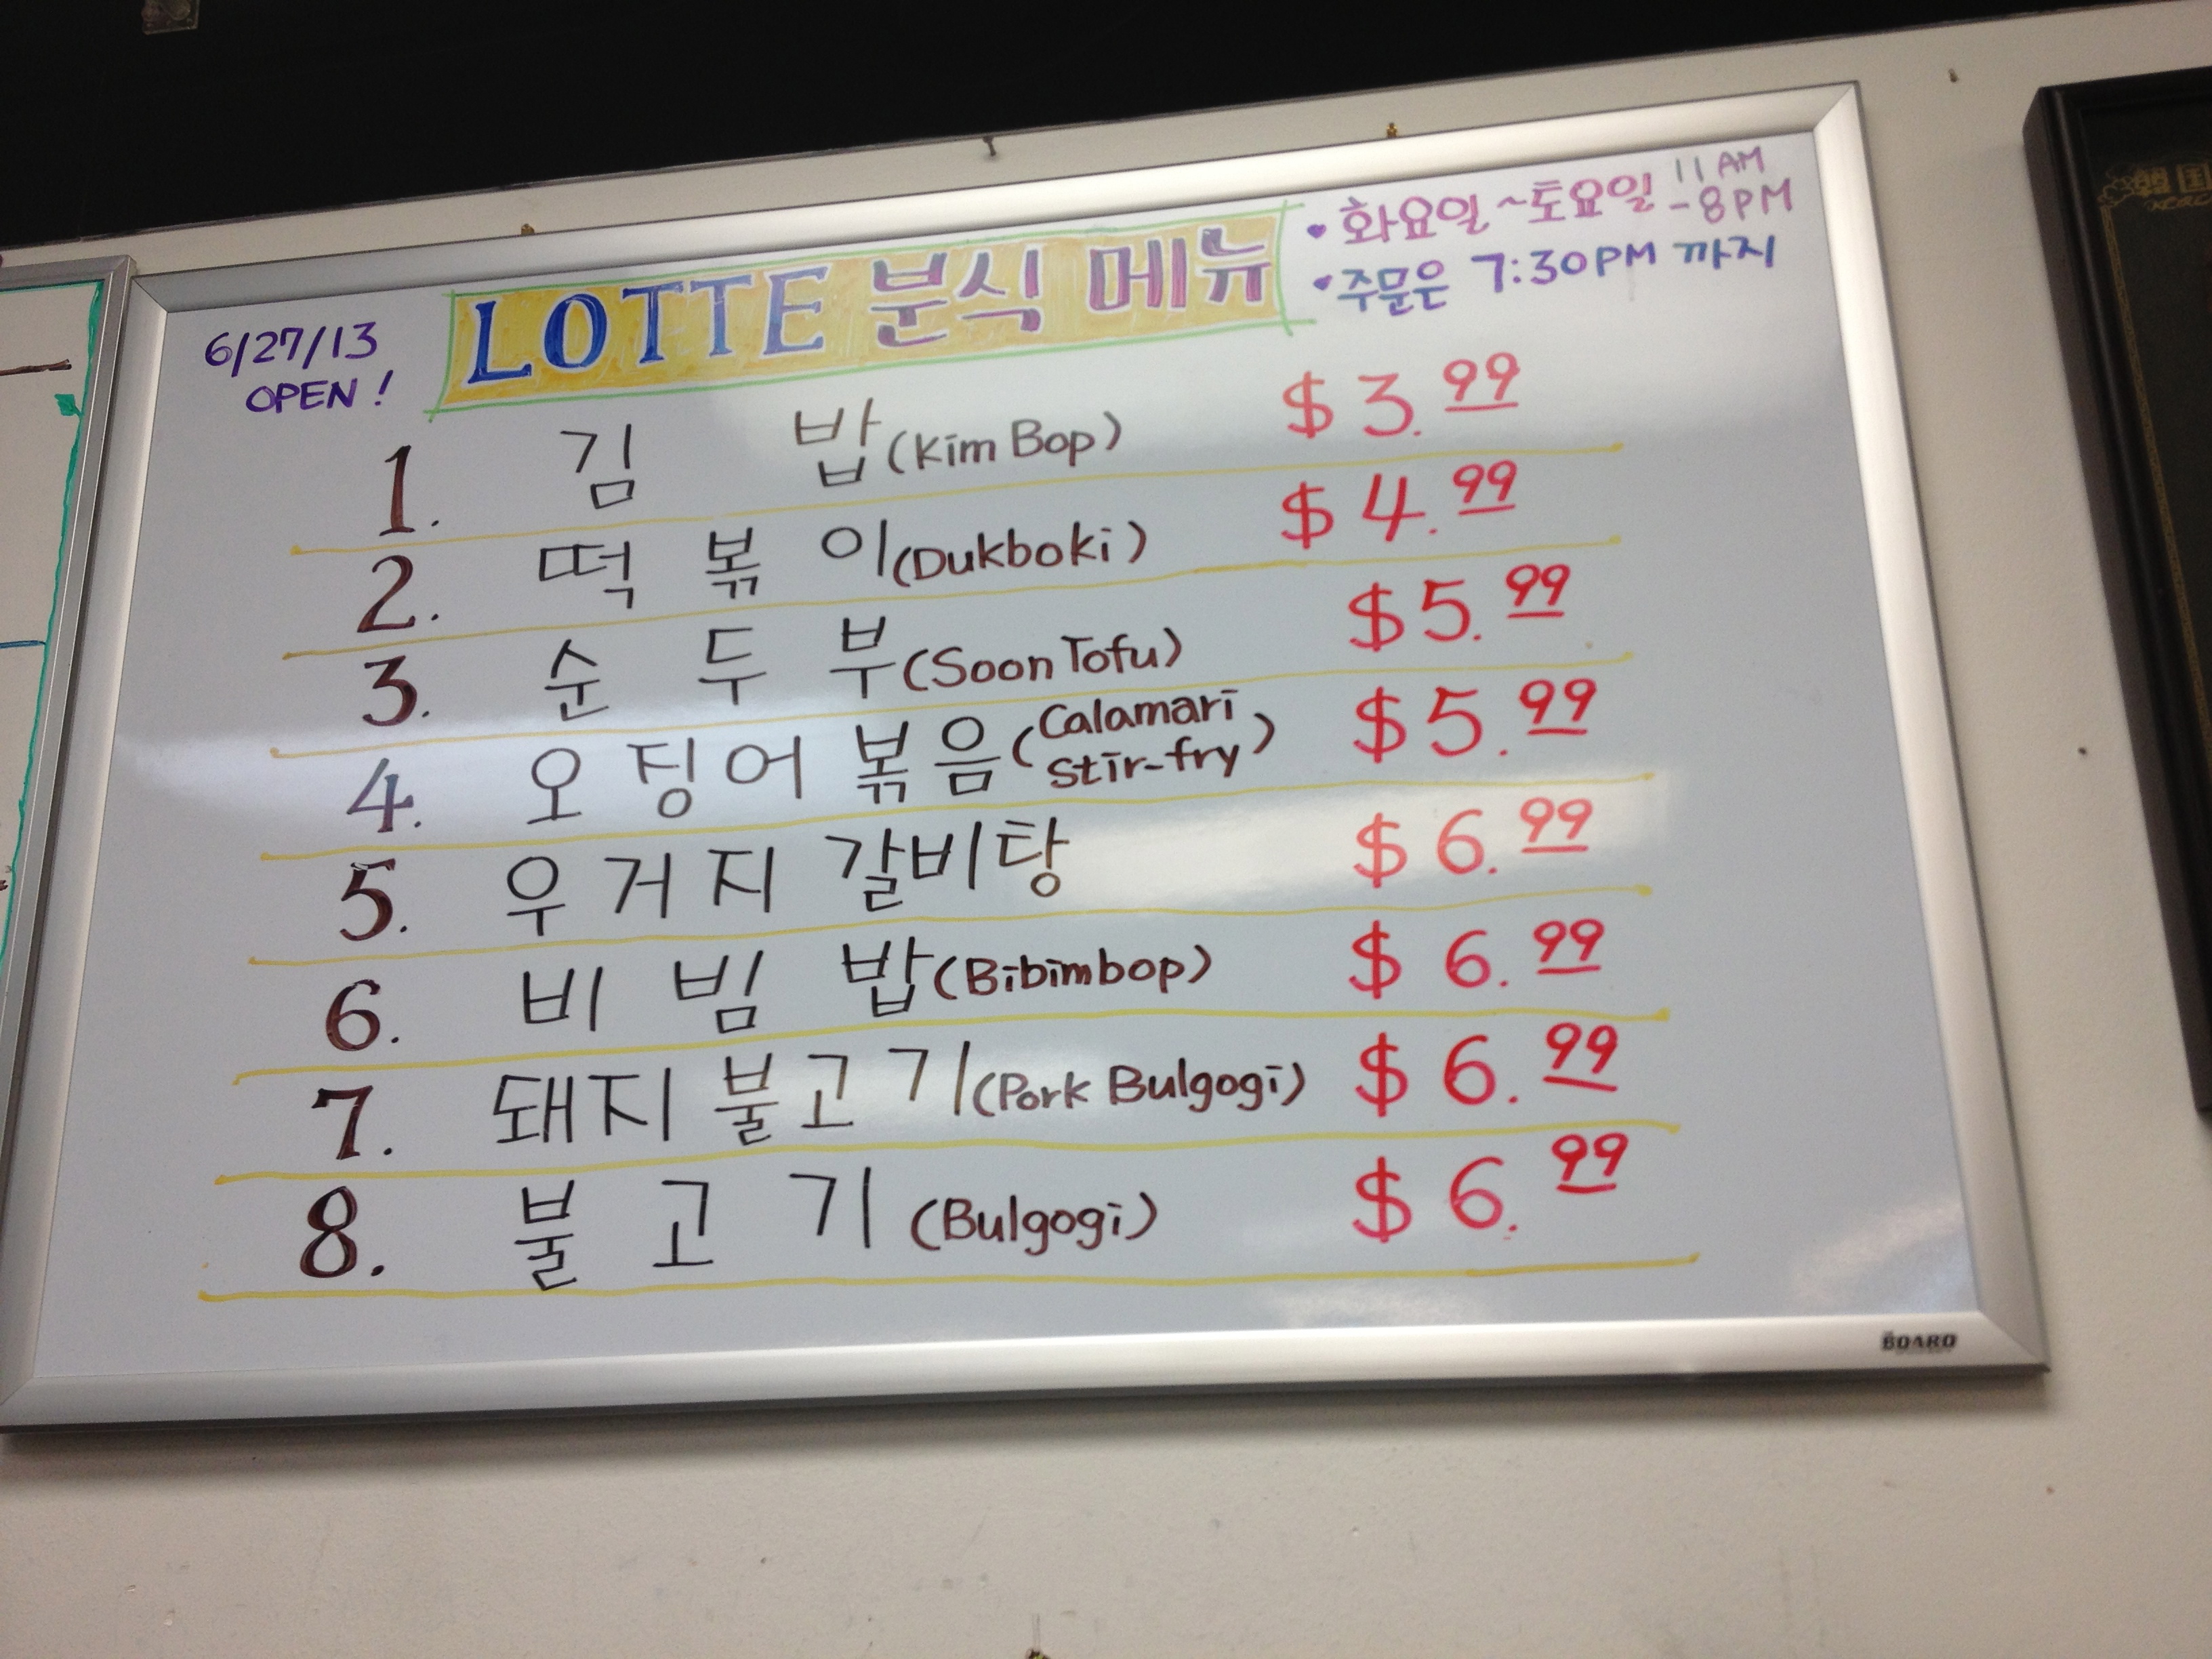 LOTTE 분식 메뉴
6/27/13
OPEN!
• 화요일 ~ 토요일 11 AM
- 8 PM
• 주문은 7:30 PM 까지
1. 김 밥 (Kim Bop) $3.99
2. 떡 볶 이 (Dukboki) $4.99
3. 순 두 부 (Soon Tofu) $5.99
4. 오징어 볶음 (Calamari Stir-fry) $5.99
5. 우거지 갈비탕 $6.99
6. 비 빔 밥 (Bibimbop) $6.99
7. 돼지 불고기 (Pork Bulgogi) $6.99
8. 불 고 기 (Bulgogi) $6.99
BOARD